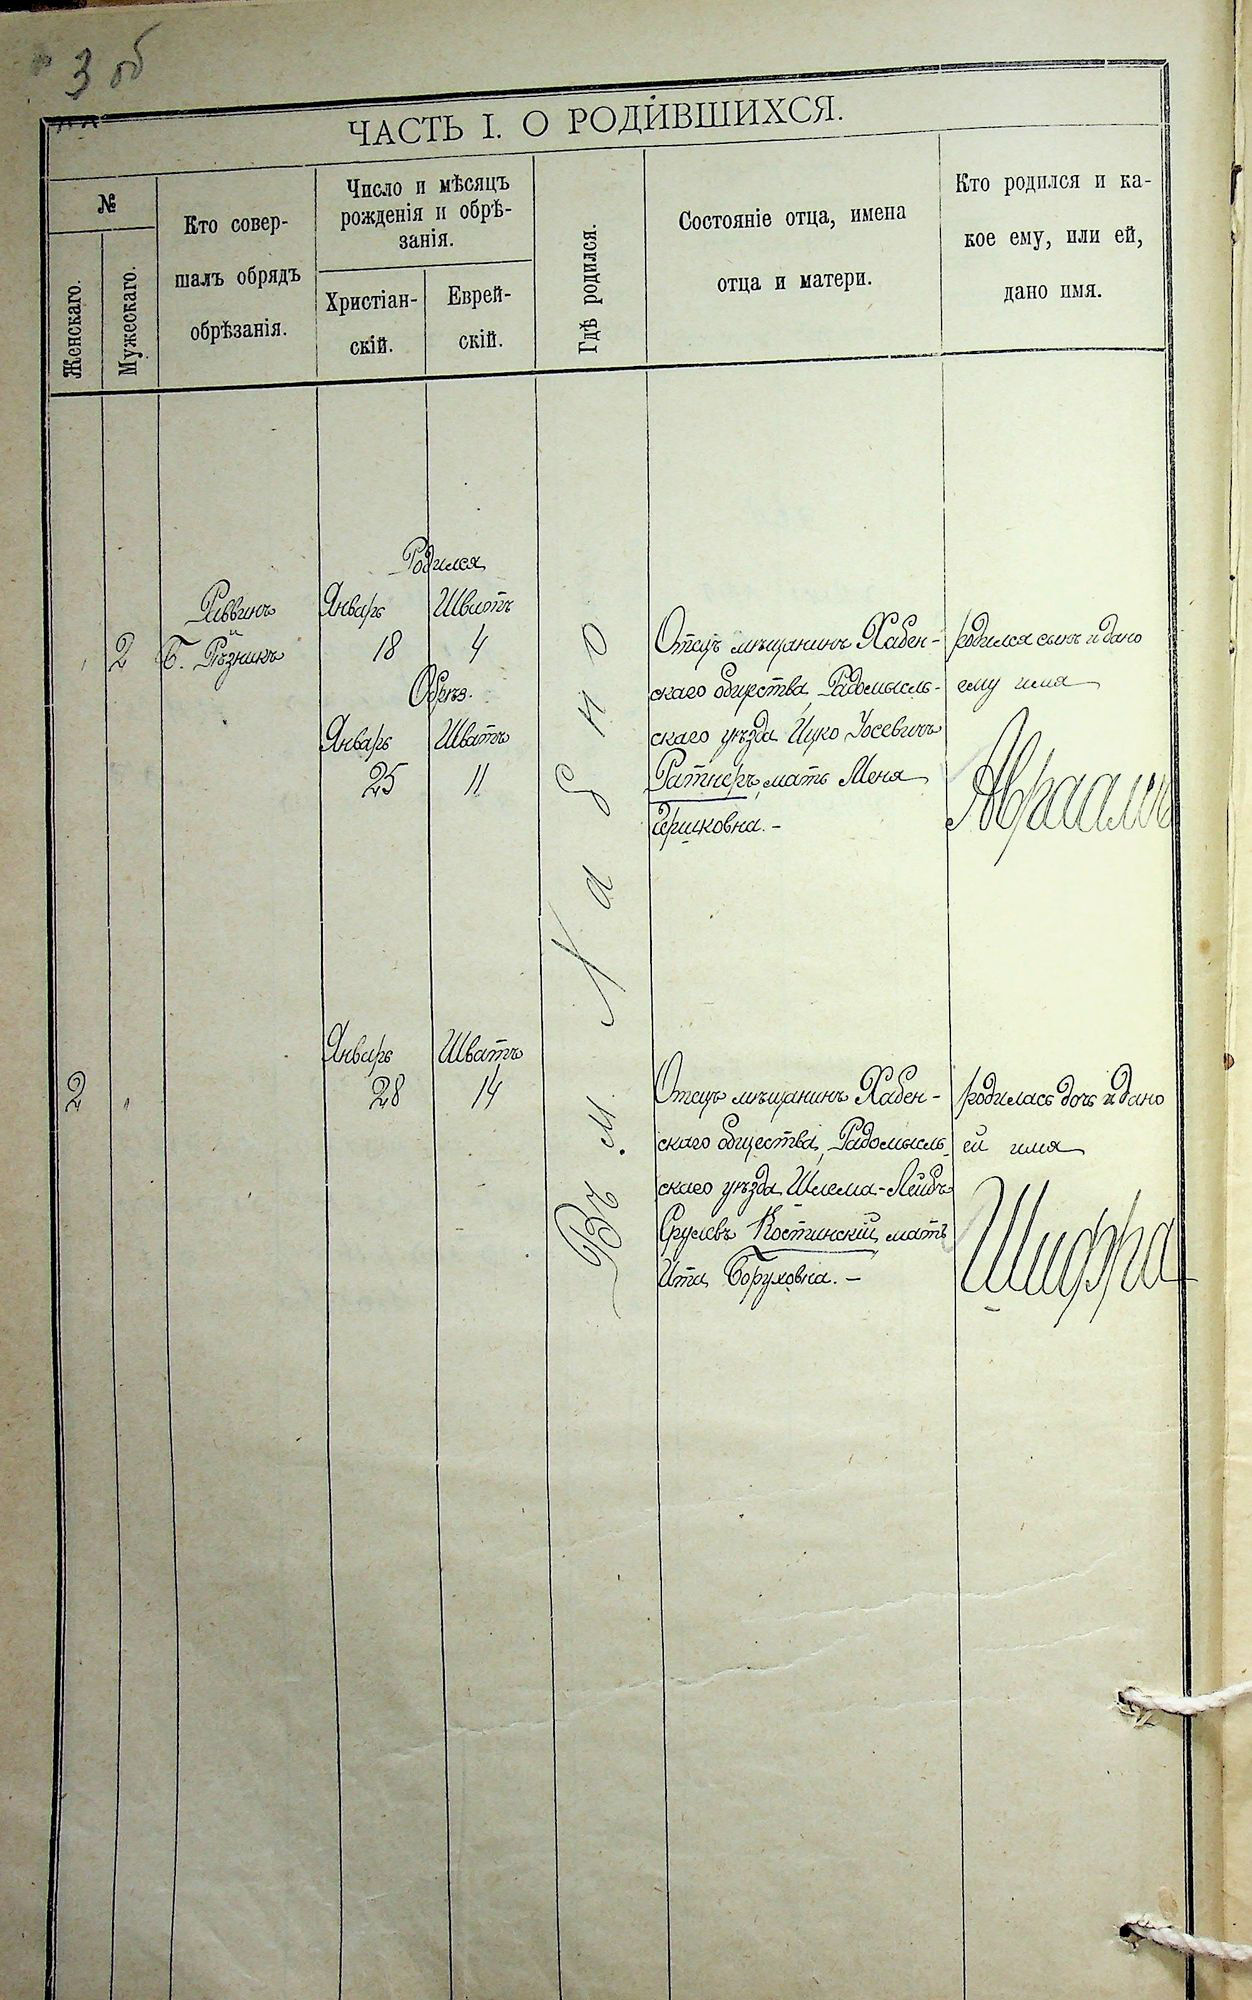 3 об
ЧАСТЬ I. О РОДИВШИХСЯ.
№
Женскаго.
Мужескаго.
Кто совер-
шалъ обрядъ
обрѣзанія.
Число и мѣсяцъ
рожденія и обрѣ-
занія.
Христіан-
скій.
Еврей-
скій.
Гдѣ родился.
Состояніе отца, имена
отца и матери.
Кто родился и ка-
кое ему, или ей,
дано имя.
2
Раввинъ
и
Б. Рѣзникъ
Родился
Январь Шватъ
18 4
Обрѣз.
Январь Шватъ
25 11
Въ м. Хабно
Отецъ мѣщанинъ Хабен-
скаго общества, Радомысль-
скаго уѣзда Ицко Іосевичъ
Ратнеръ, мать Меня
Гершковна. –
родился сынъ и дано
ему имя
Авраамъ
2 „
Январь Шватъ
28 14
Отецъ мѣщанинъ Хабен-
скаго общества, Радомысль-
скаго уѣзда Шлема-Лейбъ
Сруль Костинскій, мать
Ита Боруховна. –
родилась дочь и дано
ей имя
Шифра